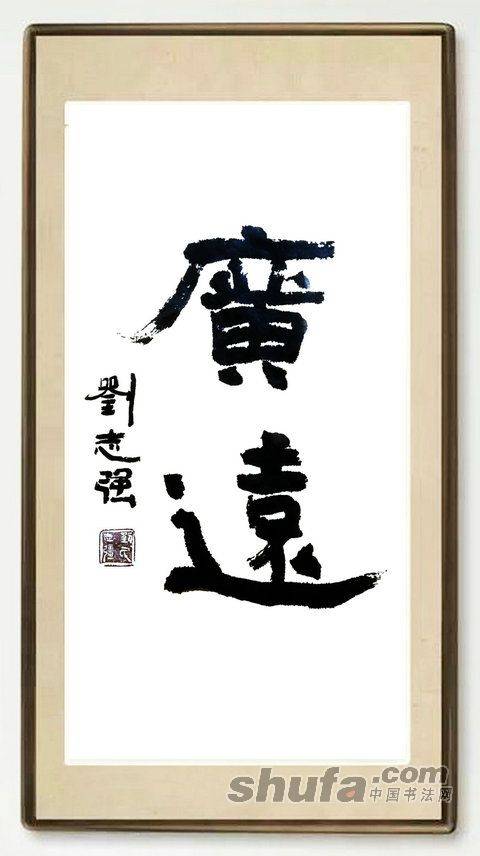 廣遠
劉志强
shufa.com
中国书法网